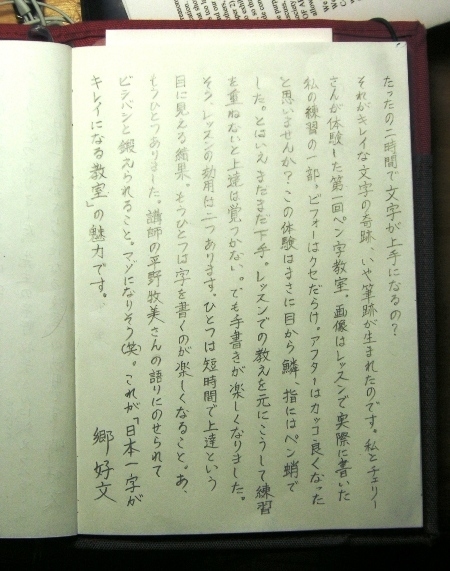 たったの二時間で文字が上手になるの？
それがキレイな文字の奇跡、いや筆跡が生まれたのです。私とチェリー
さんが体験した第一回ペン字教室。画像はレッスンで実際に書いた
私の練習の一部。ビフォーはクセだらけ。アフターはカッコ良くなった
と思いませんか？この体験はまさに目から鱗、指にはペン蛸で
した。とはいえまだまだ下手。レッスンでの教えを元にこうして練習
を重ねないと上達は覚つかない。でも手書きが楽しくなりました。
そう、レッスンの効用は二つあります。ひとつは短時間で上達という
目に見える結果。もうひとつは字を書くのが楽しくなること。あ、
もうひとつありました。講師の平野牧美さんの語りにのせられて
ビシバシと鍛えられること。マゾになりそう(笑)。これが「日本一字が
キレイになる教室」の魅力です。
郷好文